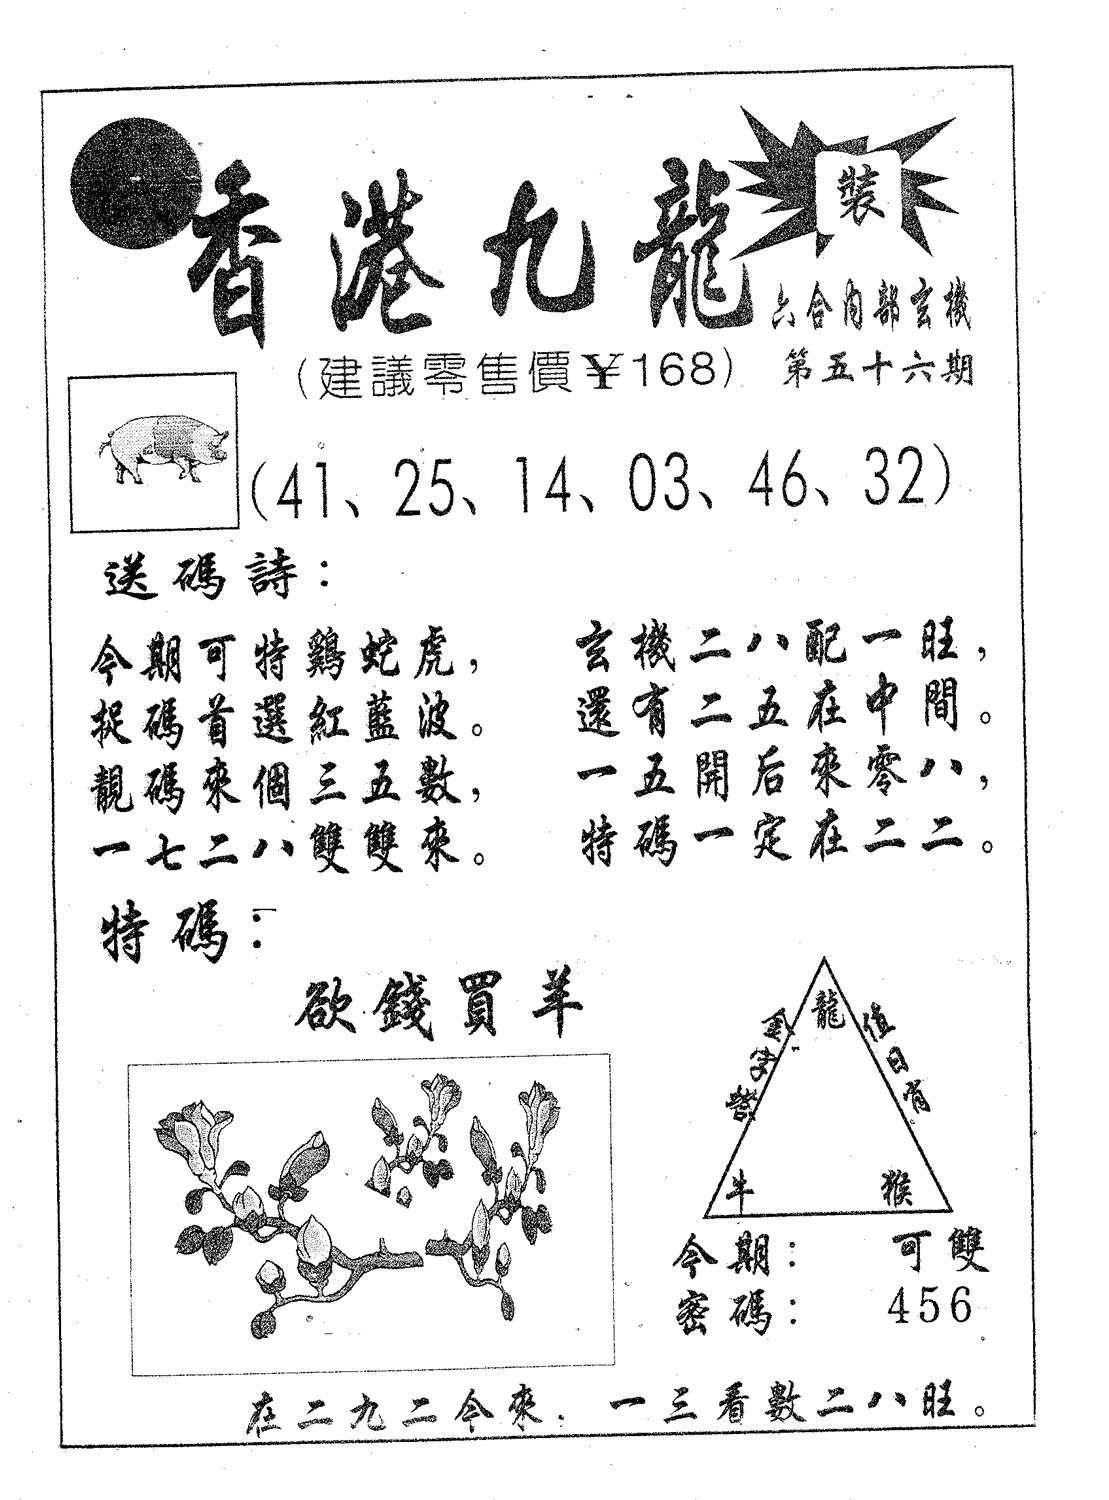 香港九龍
裝
六合內部玄機
(建議零售價¥168)
第五十六期
(41、25、14、03、46、32)
送碼詩：
今期可特鷄蛇虎，
捉碼首選紅藍波。
靚碼來個三五數，
一七二八雙雙來。
玄機二八配一旺，
還有二五在中間。
一五開后來零八，
特碼一定在二二。
特碼：
欲錢買羊
金字塔
值日肖
龍
牛
猴
今期： 可雙
密碼： 456
在二九二今來．一三看數二八旺。